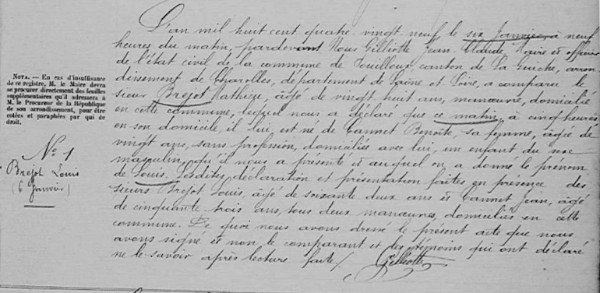 L'an mil huit cent quatre vingt neuf le six Janvier à neuf
heures du matin, pardevant Nous Gilliotte Jean Claude Maire et officier
de l'état civil de la commune de canton de La Guiche, arron
dissement de Charolles, département de Saône et Loire, a comparu le
sieur Brejot Mathieu, âgé de vingt huit ans, manœuvre, domicilié
en cette commune, lequel nous a déclaré que ce matin, à cinq heures
en son domicile, il lui est né de Cannet Benoîte, sa femme, âgée de
vingt ans, sans profession, domiciliée avec lui, un enfant du sexe
masculin, qu'il nous a présenté et auquel on a donné le prénom
de Louis. Lesdites déclaration et présentation faites en présence des
sieurs Brejot Louis, âgé de soixante deux ans et Cannet Jean, âgé
de cinquante trois ans, tous deux manœuvres, domiciliés en cette
commune. De quoi nous avons dressé le présent acte que nous
avons signé et non le comparant et les témoins qui ont déclaré
ne le savoir après lecture faite/. Gilliotte
NOTA. — En cas d'insuffisance
de ce registre, M. le Maire devra
se procurer directement des feuilles
supplémentaires qu'il adressera à
M. le Procureur de la République
de son arrondissement, pour être
cotées et paraphées par qui de
droit.
N° 1
Brejot Louis
(6 Janvier)